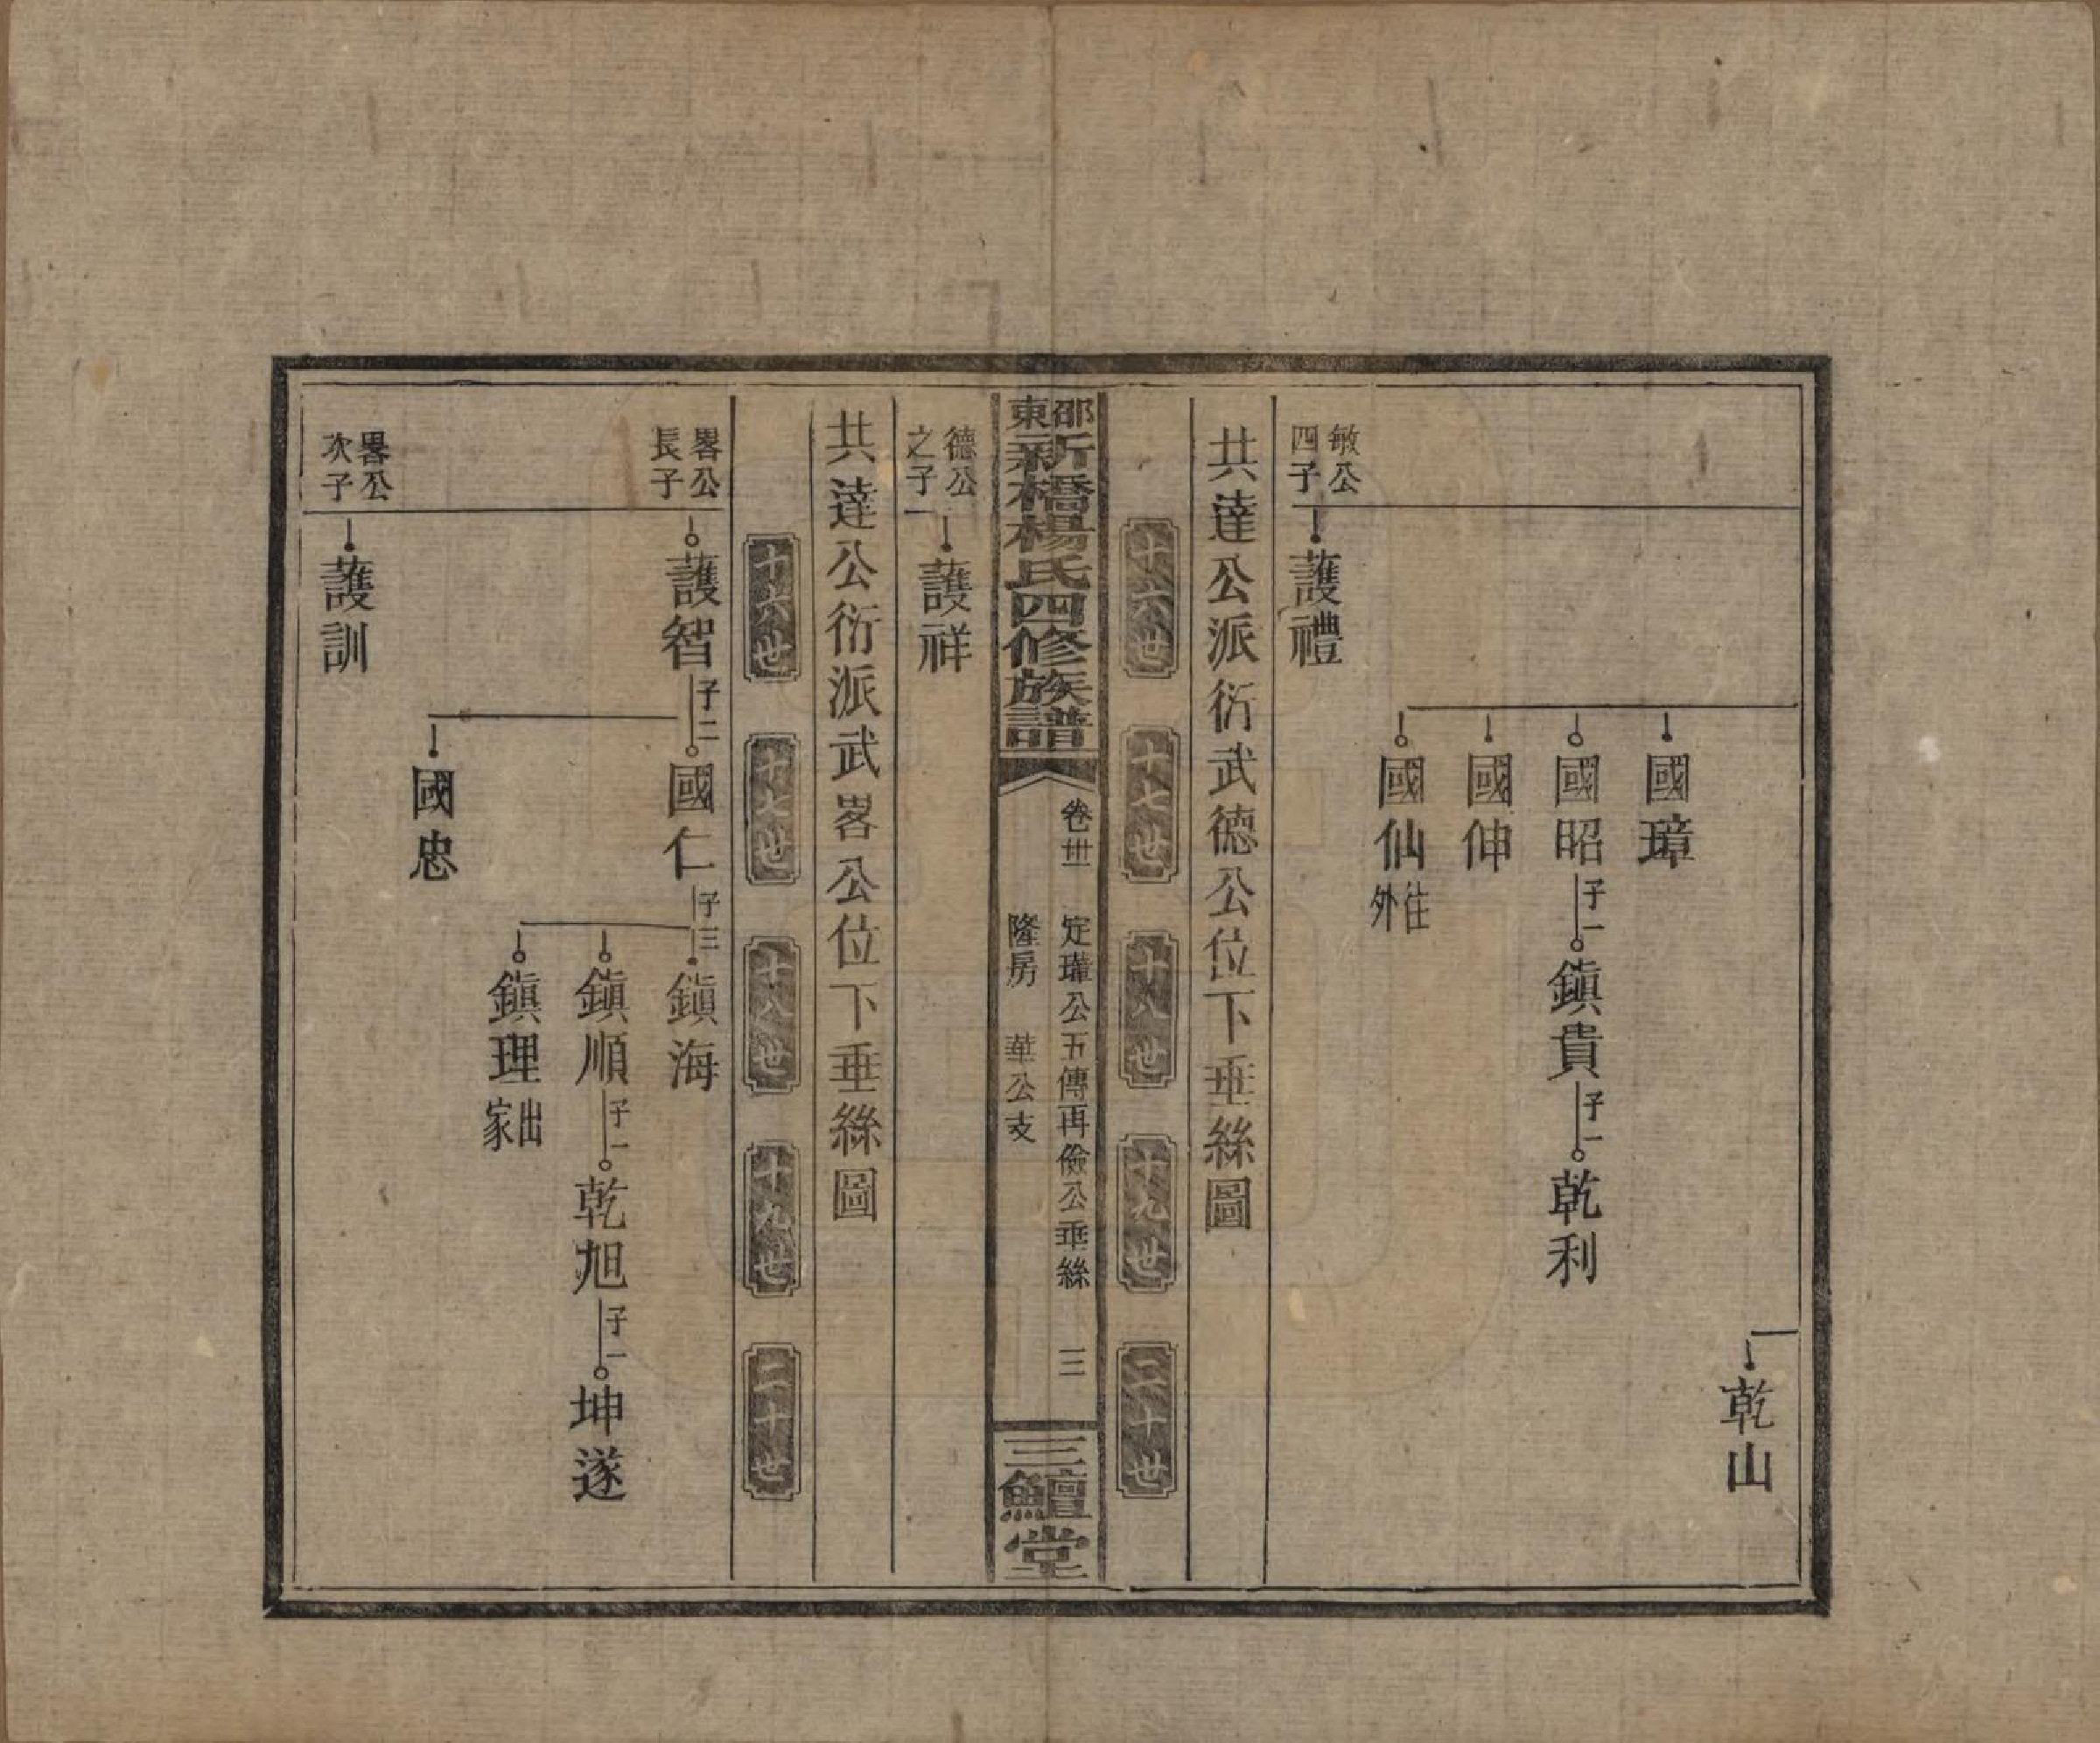 乾山
國璋
國昭 子一 鎭貴 子一 乾利
國伸
國仙 往外
敏公四子 護禮
共達公派衍武德公位下垂絲圖
十六世 十七世 十八世 十九世 二十世
邵東新橋楊氏四修族譜 卷卅 定瓘公五傳再儉公垂絲 三
隆房 華公支
三鱣堂
德公之子 護祥
共達公衍派武畧公位下垂絲圖
十六世 十七世 十八世 十九世 二十世
畧公長子 護智 子二 國仁 子三 鎭海
鎭順 子一 乾旭 子一 坤遂
鎭理 出家
國忠
畧公次子 護訓